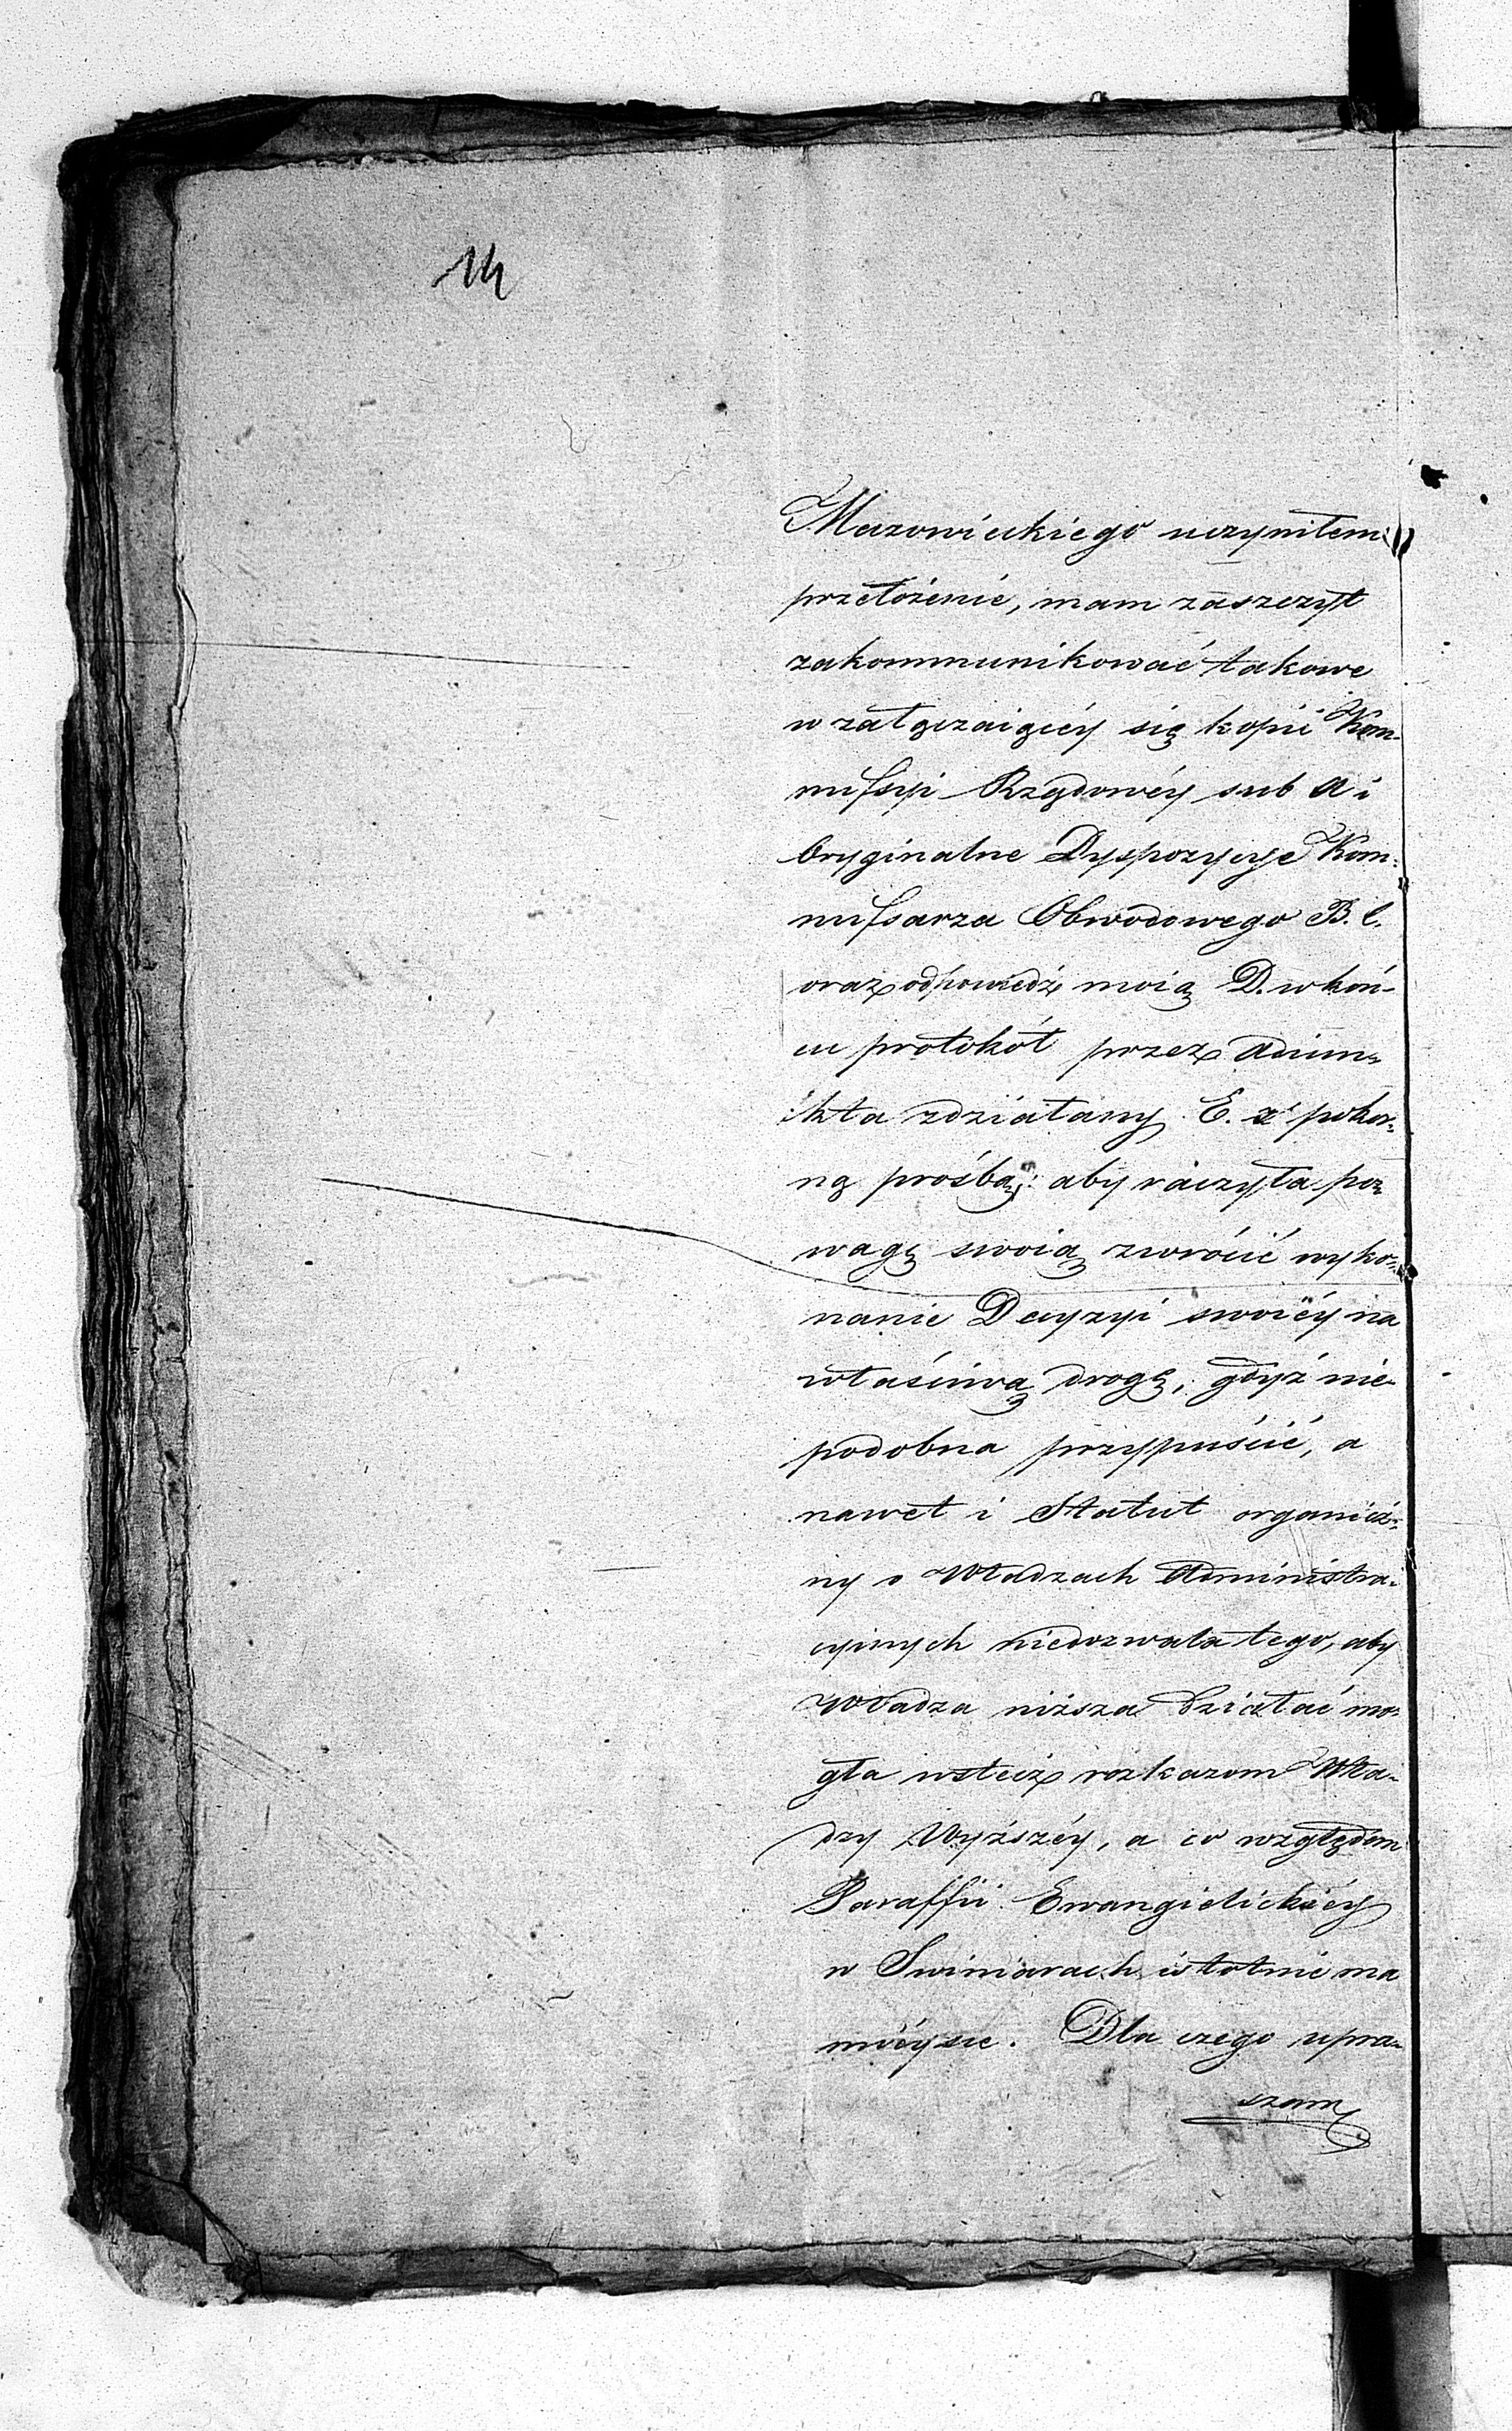 14
Mazowieckiego uczyniłem
przełożenie, mam zaszczyt
zakommunikować takowe
w załączaiącéy się kopii Kom-
missyi Rządowéy sub A i
Oryginalne Dyspozycye Kom-
missarza Obwodowego B. C.
oraz odpowiedź moią D. w koń-
cu protokół przez Adiun-
kta zdziałany E. z pokor-
ną prośbą: aby raczyła po-
wagą swoią zwrócić wyko-
nanie Decyzyi swoiéy na
właściwą drogę, gdyż nie-
podobna przypuścić, a
nawet i Statut organicz-
ny o Władzach Administra-
cyinych niedozwala tego, aby
Władza niższa działać mo-
gła wstecz rozkazom Wła-
dzy Wyższéy, a co względem
Paraffii Ewangielickiéy
w Swiniarach istotnie ma
mieysce. Dla czego upra-
szam